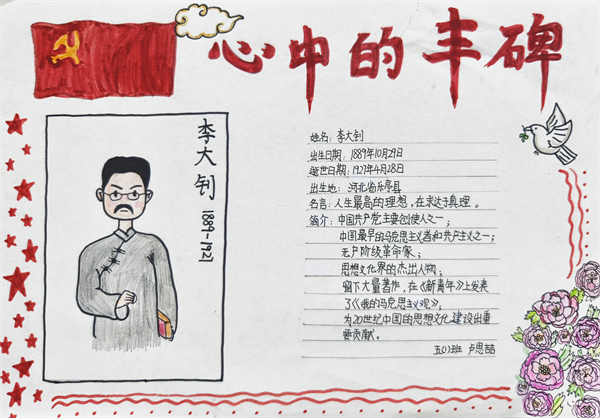 心中的丰碑
李大钊
1889-1921
姓名：李大钊
出生日期：1889年10月29日
逝世日期：1927年4月28日
出生地：河北省乐亭县
名言：人生最高的理想，在求达于真理。
简介：中国共产党主要创使人之一；
中国最早的马克思主义者和共产主义之一；
无产阶级革命家；
思想文化界的杰出人物；
留下大量著作，在《新青年》上发表
了《我的马克思主义观》，
为20世纪中国的思想文化建设出重
要贡献。
五(1)班 卢思喆